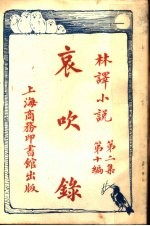 林譯小說
第二集
第十編
哀吹錄
上海商務印書館出版